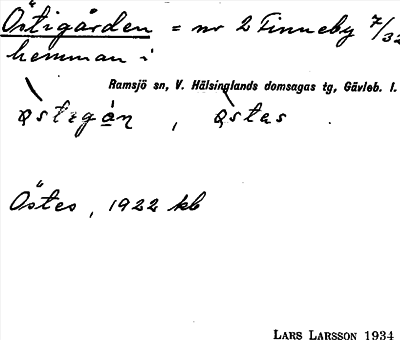 Östigården = nr 2 Finneby 7/32
hemman i
Ramsjö sn, V. Hälsinglands domsagas tg, Gävleb. l.
östigán, östes.
Östes, 1922 kb
LARS LARSSON 1934